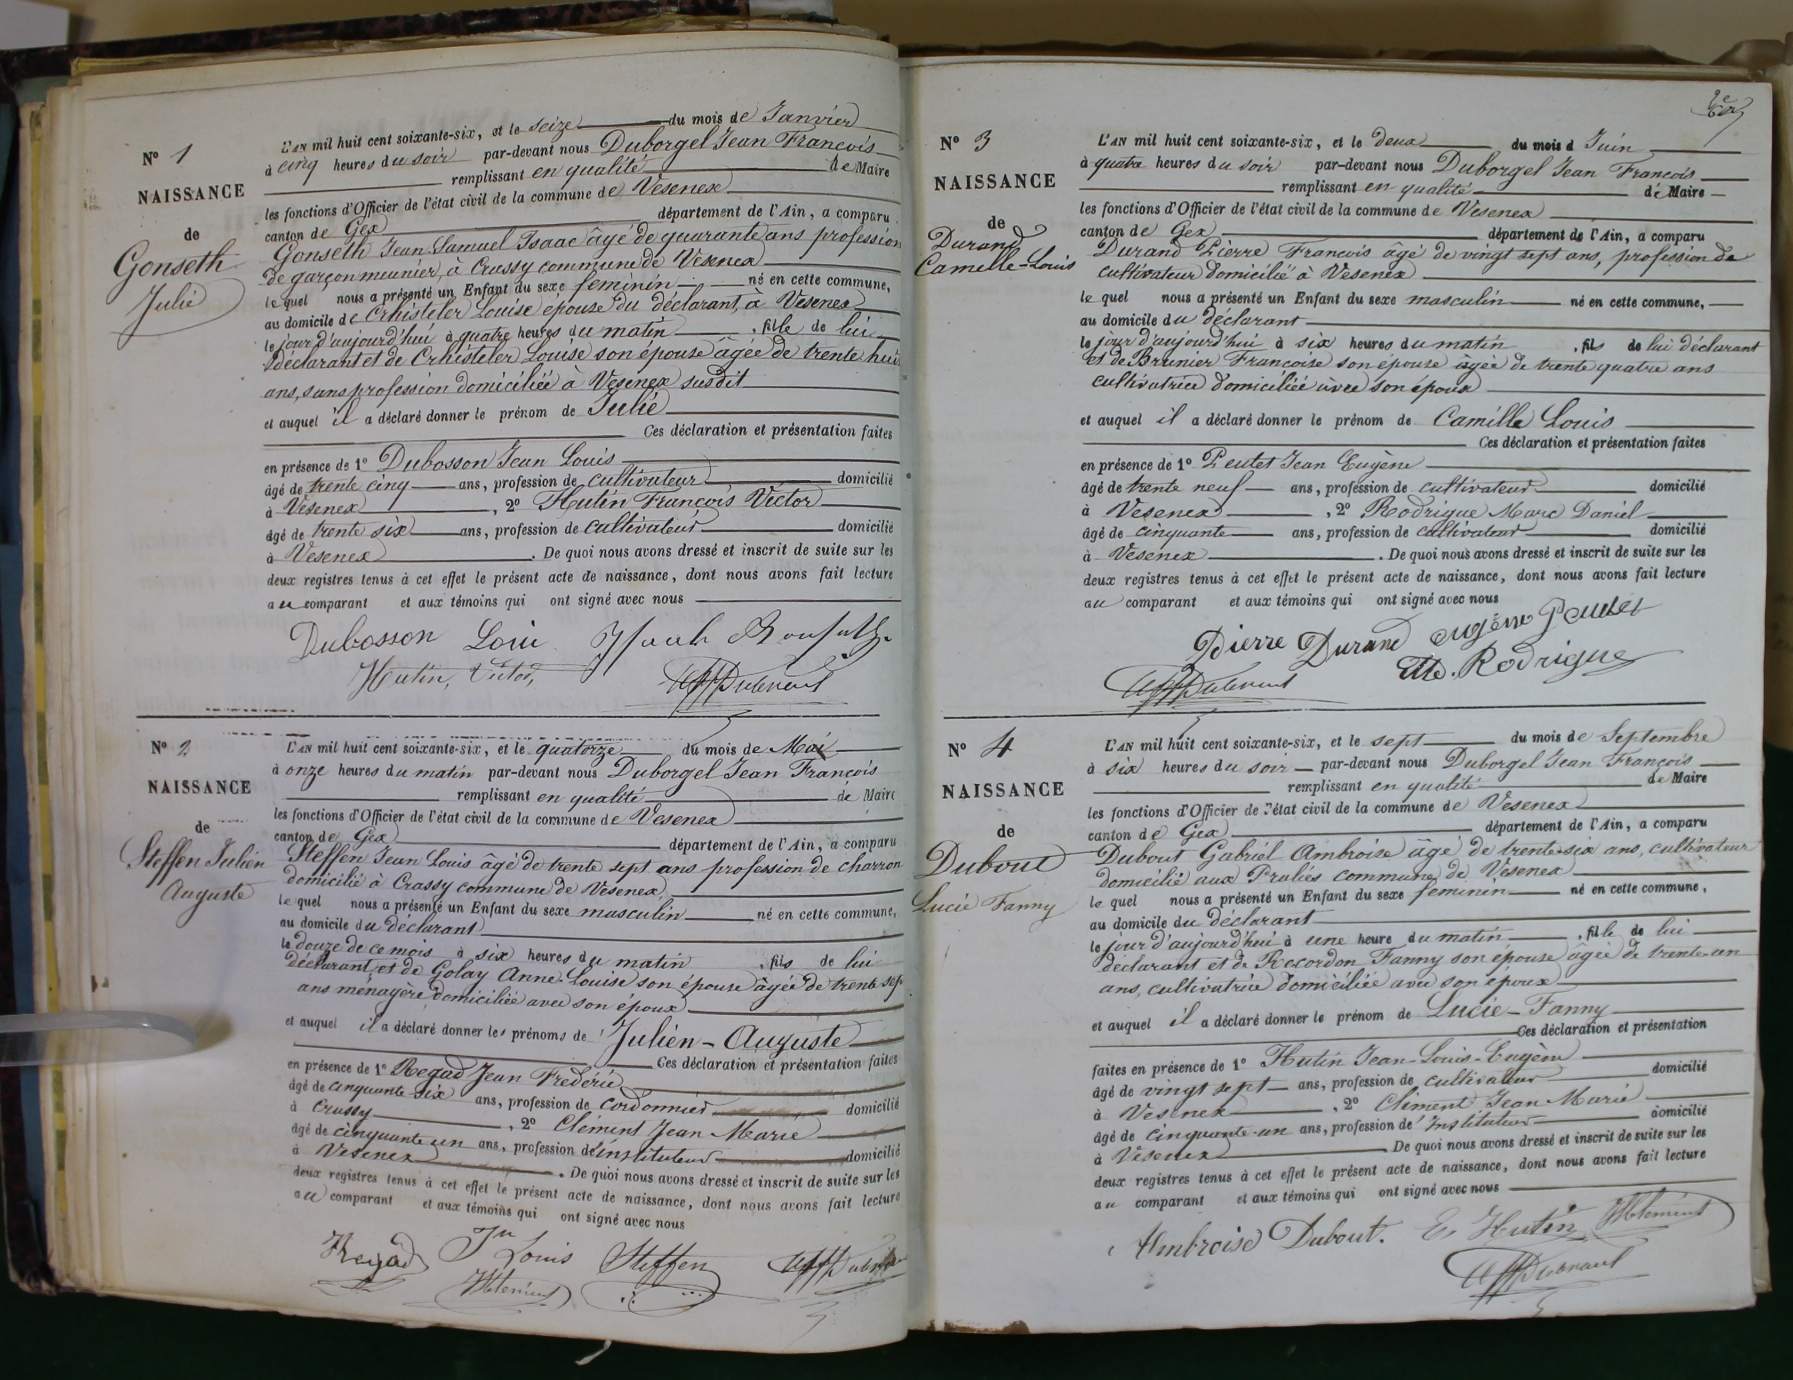 N° 1
NAISSANCE
de
Gonseth
Julie
L'AN mil huit cent soixante-six, et le seize du mois de Janvier
à cinq heures du soir par-devant nous Duborgel Jean François
remplissant en qualité de Maire
les fonctions d'Officier de l'état civil de la commune de Vesenex
canton de Gex département de l'Ain, a comparu
Gonseth Jean Samuel Isaac âgé de quarante ans profession
de garçon meunier, à Crassy commune de Vesenex
le quel nous a présenté un Enfant du sexe feminin né en cette commune,
au domicile de Crhisteler Louise épouse du déclarant, à Vesenex
le jour d'aujourd'hui à quatre heures du matin , fille de lui
déclarant et de Crhisteler Louise son épouse âgée de trente huit
ans, sans profession domiciliée à Vesenex susdit
et auquel il a déclaré donner le prénom de Julie
Ces déclaration et présentation faites
en présence de 1° Dubosson Jean Louis
âgé de trente cinq ans, profession de cultivateur domicilié
à Vesenex , 2° Hutin François Victor
âgé de trente six ans, profession de cultivateur domicilié
à Vesenex . De quoi nous avons dressé et inscrit de suite sur les
deux registres tenus à cet effet le présent acte de naissance, dont nous avons fait lecture
au comparant et aux témoins qui ont signé avec nous
Dubosson Loui
Hutin, Victor,
N° 2
NAISSANCE
de
Steffen Julien
Auguste
L'AN mil huit cent soixante-six, et le quatorze du mois de Mai
à onze heures du matin par-devant nous Duborgel Jean François
remplissant en qualité de Maire
les fonctions d'Officier de l'état civil de la commune de Vesenex
canton de Gex département de l'Ain, a comparu
Steffen Jean Louis âgé de trente sept ans profession de charron
domicilié à Crassy commune de Vesenex
le quel nous a présenté un Enfant du sexe masculin né en cette commune,
au domicile du déclarant
le douze de ce mois à six heures du matin , fils de lui
déclarant et de Golay Anne Louise son épouse âgée de trente sep
ans ménagère domiciliée avec son époux
et auquel il a déclaré donner les prénoms de Julien - Auguste
Ces déclaration et présentation faites
en présence de 1° Regad Jean Frédéric
âgé de cinquante six ans, profession de cordonnier domicilié
à Crassy , 2° Clément Jean Marie
âgé de cinquante un ans, profession d'instituteur domicilié
à Vesenex . De quoi nous avons dressé et inscrit de suite sur les
deux registres tenus à cet effet le présent acte de naissance, dont nous avons fait lecture
au comparant et aux témoins qui ont signé avec nous
Regad Jn Louis Steffen
N° 3
NAISSANCE
de
Durand
Camille-Louis
L'AN mil huit cent soixante-six, et le deux du mois d Juin
à quatre heures du soir par-devant nous Duborgel Jean François
remplissant en qualité de Maire
les fonctions d'Officier de l'état civil de la commune de Vesenex
canton de Gex département de l'Ain, a comparu
Durand Pierre François âgé de vingt sept ans, profession de
cultivateur domicilié à Vesenex
le quel nous a présenté un Enfant du sexe masculin né en cette commune,
au domicile du déclarant
le jour d'aujourd'hui à six heures du matin , fils de lui déclarant
et de Brunier Françoise son épouse âgée de trente quatre ans
cultivatrice domiciliée avec son époux
et auquel il a déclaré donner le prénom de Camille Louis
Ces déclaration et présentation faites
en présence de 1° Peutet Jean Eugène
âgé de trente neuf ans, profession de cultivateur domicilié
à Vesenex , 2° Rodrigue Marc Daniel
âgé de cinquante ans, profession de cultivateur domicilié
à Vesenex . De quoi nous avons dressé et inscrit de suite sur les
deux registres tenus à cet effet le présent acte de naissance, dont nous avons fait lecture
au comparant et aux témoins qui ont signé avec nous
Pierre Durand Eugène Peutet
Md. Rodrigue
N° 4
NAISSANCE
de
Dubout
Lucie Fanny
L'AN mil huit cent soixante-six, et le sept du mois de Septembre
à six heures du soir par-devant nous Duborgel Jean François
remplissant en qualité de Maire
les fonctions d'Officier de l'état civil de la commune de Vesenex
canton de Gex département de l'Ain, a comparu
Dubout Gabriel Ambroise âgé de trente-six ans, cultivateur
domicilié aux Prulies commune de Vesenex
le quel nous a présenté un Enfant du sexe feminin né en cette commune,
au domicile du déclarant
le jour d'aujourd'hui à une heure du matin , fille de lui
déclarant et de Recordon Fanny son épouse âgée de trente-un
ans, cultivatrice domiciliée avec son époux
et auquel il a déclaré donner le prénom de Lucie - Fanny
Ces déclaration et présentation
faites en présence de 1° Hutin Jean-Louis-Eugène
âgé de vingt sept ans, profession de cultivateur domicilié
à Vesenex , 2° Clément Jean Marie
âgé de cinquante-un ans, profession d'instituteur domicilié
à Vesenex De quoi nous avons dressé et inscrit de suite sur les
deux registres tenus à cet effet le présent acte de naissance, dont nous avons fait lecture
au comparant et aux témoins qui ont signé avec nous
Ambroise Dubout. E. Hutin